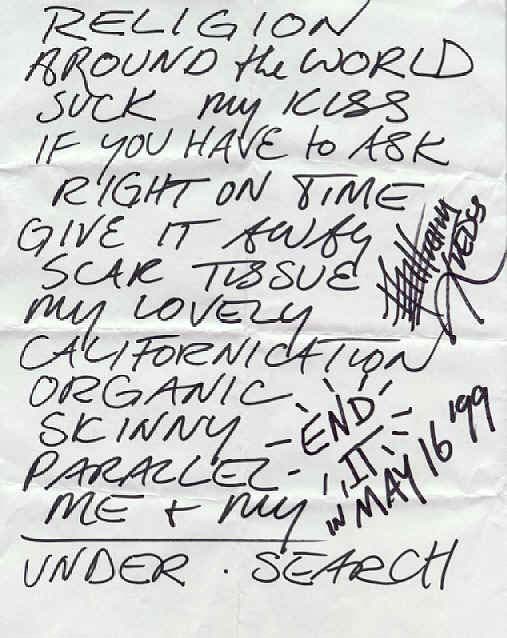 RELIGION
AROUND the WORLD
SUCK my KISS
IF YOU HAVE to ASK
RIGHT ON TIME
GIVE IT AWAY
SCAR TISSUE
MY LOVELY
CALIFORNICATION
ORGANIC
SKINNY
PARALLEL
ME + MY
UNDER . SEARCH
END
IT
IN MAY 16 '99